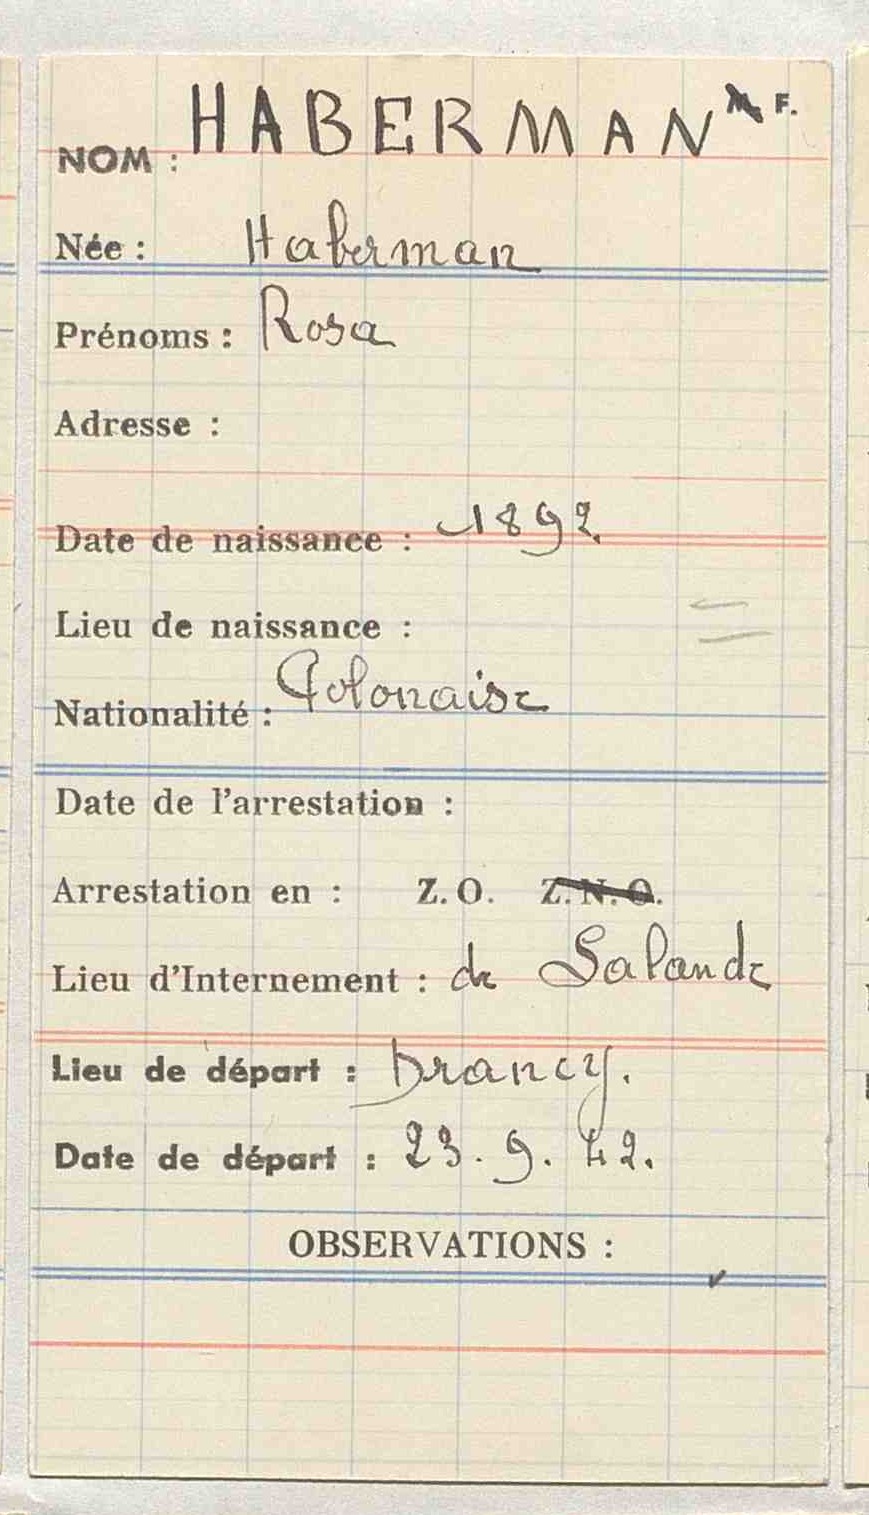 NOM : HABERMAN M. F.
Née : Haberman
Prénoms : Rosa
Adresse :
Date de naissance : 1892.
Lieu de naissance :
Nationalité : Polonaise
Date de l'arrestation :
Arrestation en : Z. O. Z. N. O.
Lieu d'Internement : de Lalande
Lieu de départ : Drancy.
Date de départ : 23. 9. 42.
OBSERVATIONS :